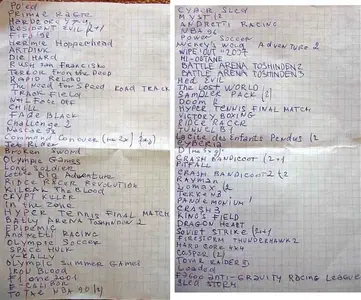 Po'ed
PRIMAL RAGE
HARDCORE 4X4
RESIDENT EVIL 2+1
FIFA 98
JERMIE HOPPERHEAD
ARTDINK
DIE HARD
RUSH SAN FRANCISKO
TERROR FROM THE DEEP
RAPID RELOAD
THE NEED FOR SPEED ROAD TRACK
TRACK FIELD
BALL FACE OFF
CHILL
FADE BLACK
CHALLENGE 2
NASCAR 98
COMMAND CONQUER
JET RIDER
BROKEN SWORD
OLYMPIC GAMES
SOLDIER
LITTLE BIG ADVENTURE
RIDGE RACER REVOLUTION
KILEAK THE BLOOD
CRYPT KILLER
IN THE ZONE
HYPER TENNIS FINAL MATCH
BATTLE ARENA TOSHINDEN 2
EPIDEMIC
ANDRETTI RACING
OLYMPIC SOCCER
SPACE HULK
V-RALLY
OLYMPIC SUMMER GAMES
IRON BLOOD
F1 ONE 2001
X-CALIBOR
TO THE NBA 98
CYBER SLED
MYST
ANDRETTI RACING
NBA 96
POWER SOCCER
MICKEY'S WILD ADVENTURE 2
WIPE OUT 2097
HI-OCTANE
BATTLE ARENA TOSHINDEN 2
BATTLE ARENA TOSHINDEN 3
JED EVIL
THE LOST WORLD
SAMPLER PACK
DOOM
HYPER TENNIS FINAL MATCH
VICTORY BOXING
RIDGE RACER
TUNNEL B1
LA CITE DES ENFANTS PERDUS (2
CYBERIA
D
CRASH BANDICOOT (2+1
PITFALL
CRASH BANDICOOT 2
RAYMAN
LOMAX
TEKKEN
PANDEMONIUM
CRASH 3
KING'S FIELD
DRAGON HEART
SOVIET STRIKE (2+1
FIRESTORM THUNDERHAWK 2
HARD CORE 4X4
CASPER (2
TOMB RAIDER 3
LOADED
F3600 ANTI-GRAVITY RACING LEAGUE
SLED STORM